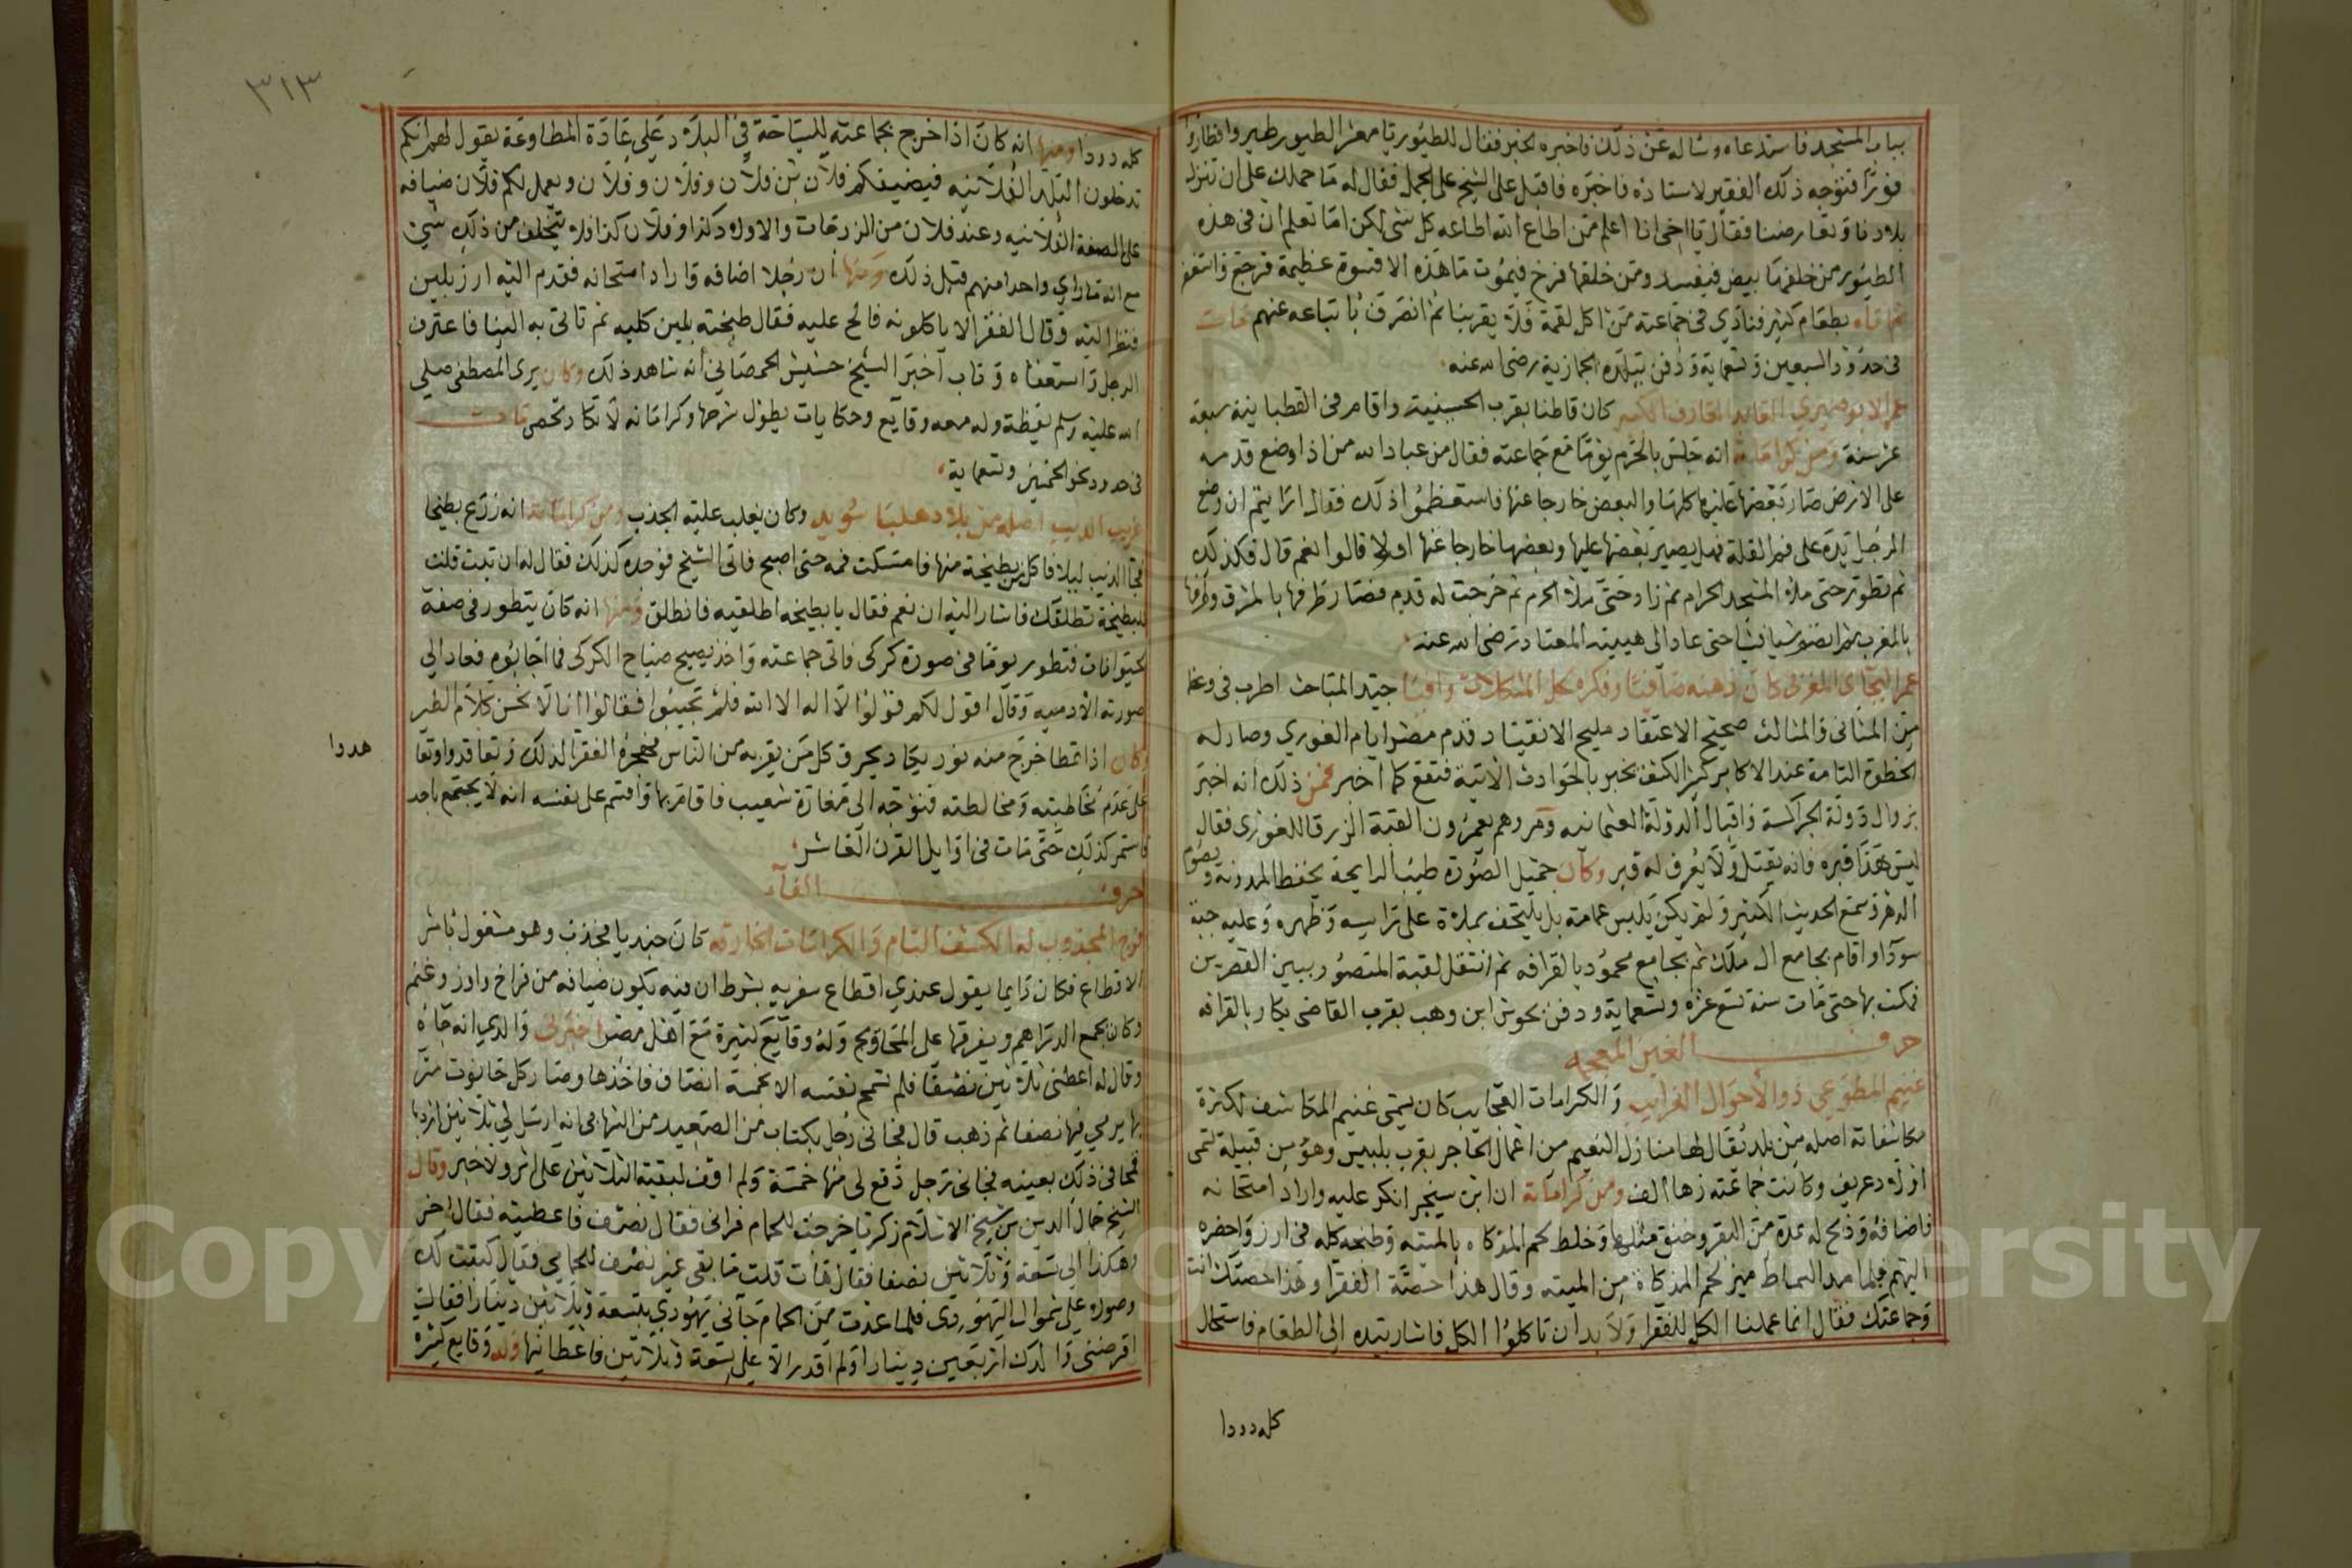 بباب المسجد فاستدعاه وساله عن ذلك فاخبره الخبر فقال للطيور يا معشر الطيور طيروا فطاروا
فورا فتوجه ذلك الفقير لاستاذه فاخبره فاقبل على الشيخ على الجمل فقال له ما حملك على ان تنزل
بلادنا وتعارضنا فقال يا اخى انا اعلم من اطاع الله اطاعه كل شى لكن اما تعلم ان فى هذه
الطيور من خلفها بيض فيفسد ومن خلفها فرخ فيموت ما هذه الا قسوة عظيمة فرجع واستغفر
ثم اتاه بطعام كثير فنادى فى جماعته من اكل لقمة فلا يقربنا ثم انصرف باتباعه عنهم مات
فى حدود السبعين وتسعماية ودفن ببلده الحجازية رضى الله عنه
عمر الابوصيرى العابد العارف الكبير كان قاطنا بقرب الحسينية واقام فى القطبانية سبعة
عشر سنة ومن كراماته انه جلس بالحرم يوما مع جماعته فقال من عباد الله من اذا وضع قدمه
على الارض صار بعضها عليها كلها والبعض خارجا عنها فاستعظموا ذلك فقال ارايتم ان وضع
الرجل يده على فم القلة فهل يصير بعضها عليها وبعضها خارجا عنها اولا قالوا نعم قال فكذلك
ثم تطور حتى ملا المسجد الحرام ثم زاد حتى ملا الحرم ثم خرجت له قدم فصار طرفها بالمشرق وطرفها
بالمغرب ثم انضم شيا فشيا حتى عاد الى هييته المعتاد رضى الله عنه
عمر البجاى المغربى كان ذهنه صافيا وفكره بحل المشكلات وافيا جيد المباحث اطرب فى وعظه
من المثانى والمثالث صحيح الاعتقاد مليح الانقياد قدم مصر ايام الغورى وصار له
الحظوة التامة عند الاكابر كثير الكشف يخبر بالحوادث الاتية فتقع كما اخبر فمن ذلك انه اخبر
بزوال دولة الجراكسة واقبال الدولة العثمانيه ومر وهم يعمرون القبة الزرقا للغورى فقال
ليس هذا قبره فانه يقتل ولا يعرف له قبر وكان جميل الصورة طيب الرايحة يحفظ المدونة ويصوم
الدهر وسمع الحديث الكثير ولم يكن يلبس عمامة بل يلتحف بملاة على راسه وظهره وعليه جبة
سودا واقام بجامع ال ملك ثم بجامع محمود بالقرافه ثم انتقل لقبة المتصور ببين القصرين
فمكث بها حتى مات سنة تسع عشره وتسعماية ودفن بحوش ابن وهب بقرب القاضى بكار بالقرافه
حرف الغين المعجمه
غنيم المطوعى ذو الاحوال الغرايب والكرامات العجايب كان يسمى غنيم المكاشف لكثرة
مكاشفاته اصله من بلد يقال لها منازل النعيم من اعمال الحاجر بقرب بلبيس وهو من قبيلة تسمى
اولاد عريف وكانت جماعته زها الف ومن كراماته ان ابن سنجر انكر عليه واراد امتحانه
فاضافه وذبح له عدة من البقر وخنق مثلها وخلط لحم المذكاه بالميته وطبخه كله فى ارز واحضره
اليهم فلما مد السماط ميز لحم المذكاة من الميته وقال هذا حصة الفقرا وهذا حصتك انت
وجماعتك فقال انما عملنا الكل للفقرا ولا بد ان تاكلوا الكل فاشار بيده الى الطعام فاستحال
كله دودا
٣١٣
كله دودا ومنها انه كان اذا خرج بجماعته للسياحة فى البلاد على عادة المطاوعة يقول لهم انكم
تدخلون البلد الفلانيه فيضيفكم فلان بن فلان وفلان وفلان ويعمل لكم فلان ضيافه
على الصفة الفلانيه وعند فلان من الزرقات والاولاد كذا وفلان كذا فلا يتخلف من ذلك شى
مع انه ما راى واحدا منهم قبل ذلك ومنها ان رجلا اضافه واراد امتحانه فقدم اليه ارز بلبن
فنظر اليه وقال الفقرا لا ياكلونه فالح عليه فقال طبخته بلبن كلبه ثم تاتى به الينا فاعترف
الرجل واستعفاه وتاب اخبر الشيخ حشيش الحمصانى انه شاهد ذلك وكان يرى المصطفى صلى
الله عليه وسلم يقظة وله معه وقايع وحكايات يطول شرحها وكراماته لا تكاد تحصى مات
فى حدود نحو الخمسين وتسعماية
غريب الذيب اصله من بلاد هلبا سويد وكان يغلب عليه الجذب ومن كراماته انه زرع بطيخا
فجا الذيب ليلا فاكل من بطيخة منها فامسكت فمه حتى اصبح فاتى الشيخ فوجده كذلك فقال له ان تبت قلت
للبطيخة تطلقك فاشار اليه ان نعم فقال يا بطيخه اطلقيه فانطلق ومنها انه كان يتطور فى صفة
الحيوانات فتطور يوما فى صورة كركى فاتى جماعته واخذ يصيح صياح الكركى فما اجابوه فعاد الى
صورته الادميه وقال اقول لكم قولوا لا اله الا الله فلم تجيبوا فقالوا انا لا نحسن كلام الطير
وكان اذا تمطا خرج منه نور يكاد يحرق كل من يقربه من الناس فهجره الفقرا لذلك وتعاقدوا وتعا
هدوا
على عدم مخاطبته ومخالطته فتوجه الى مغارة شعيب فاقام بها واقسم على نفسه انه لا يجتمع باحد
فاستمر كذلك حتى مات فى اوايل القرن العاشر
حرف الفآء
فرج المجذوب له الكشف التام والكرامات الخارقه كان جنديا فجذب وهو مشغول باثر
الاقطاع فكان دايما يقول عندى اقطاع سفريه بشرط ان فيه يكون ضيافه من فراخ واوز وغنم
وكان يجمع الدراهم ويفرقها على المحاويج وله وقايع كثيرة مع اهل مصر اخبرنى والدى انه جاه
وقال له اعطنى ثلاثين نصفا فلم تسمح نفسه الا بخمسة انصاف فاخذها وصار كل حانوت مر
بها يرمى فيها نصفا ثم ذهب قال فجانى رجل بكتاب من الصعيد من البهايم انه ارسل لى ثلاثين اردبا
قمحا فى ذلك بعينه فجانى رجل دفع لى منها خمسة ولم اقف لبقية الثلاثين على اثر ولا خبر وقال
الشيخ جمال الدين بن شيخ الاسلام زكريا خرجت للحمام فرانى فقال نصف فاعطيته فقال اخر
وهكذا الى تسعة وثلاثين نصفا فقال هات قلت ما بقى غير نصف للحمامى فقال كتبت لك
وصولا على شموال اليهودى فلما عدت من الحمام جانى يهودى بتسعة وثلاثين دينارا فقال
اقرضنى والدك اربعين دينارا ولم اقدر الا على تسعة وثلاثين فاعطانيها وله وقايع كثيرة